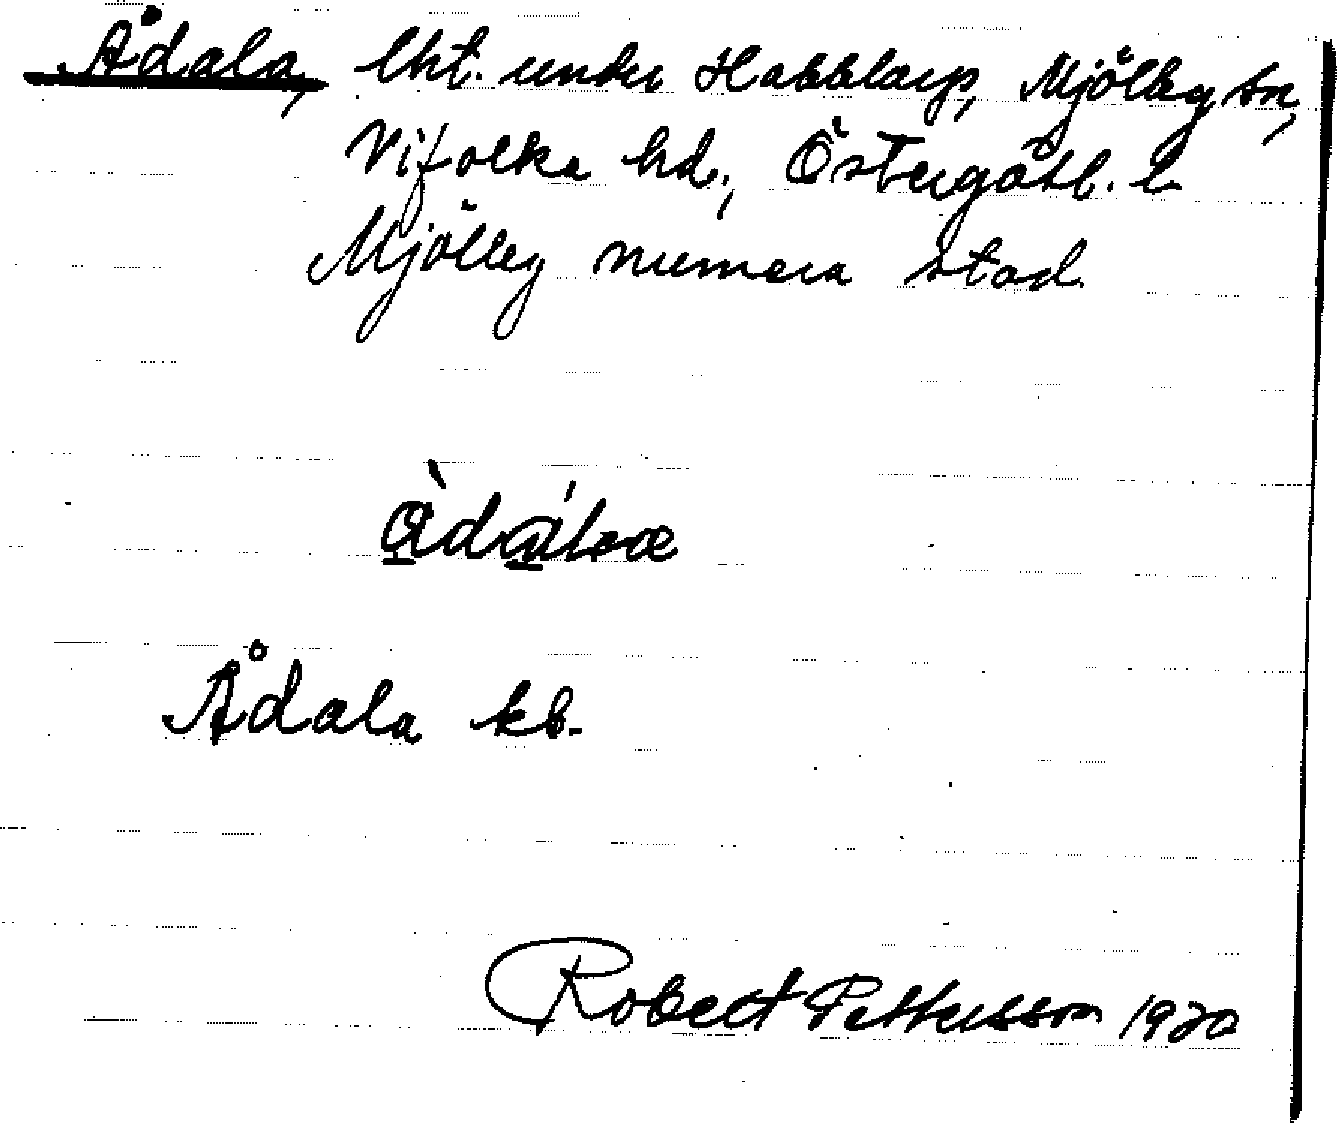 Ådala, lht. under Habblarp, Mjölby sn,
Vifolka hd., Östergötl. l.
Mjölby numera stad
Ådala kb.
Robert Pettersson 1920